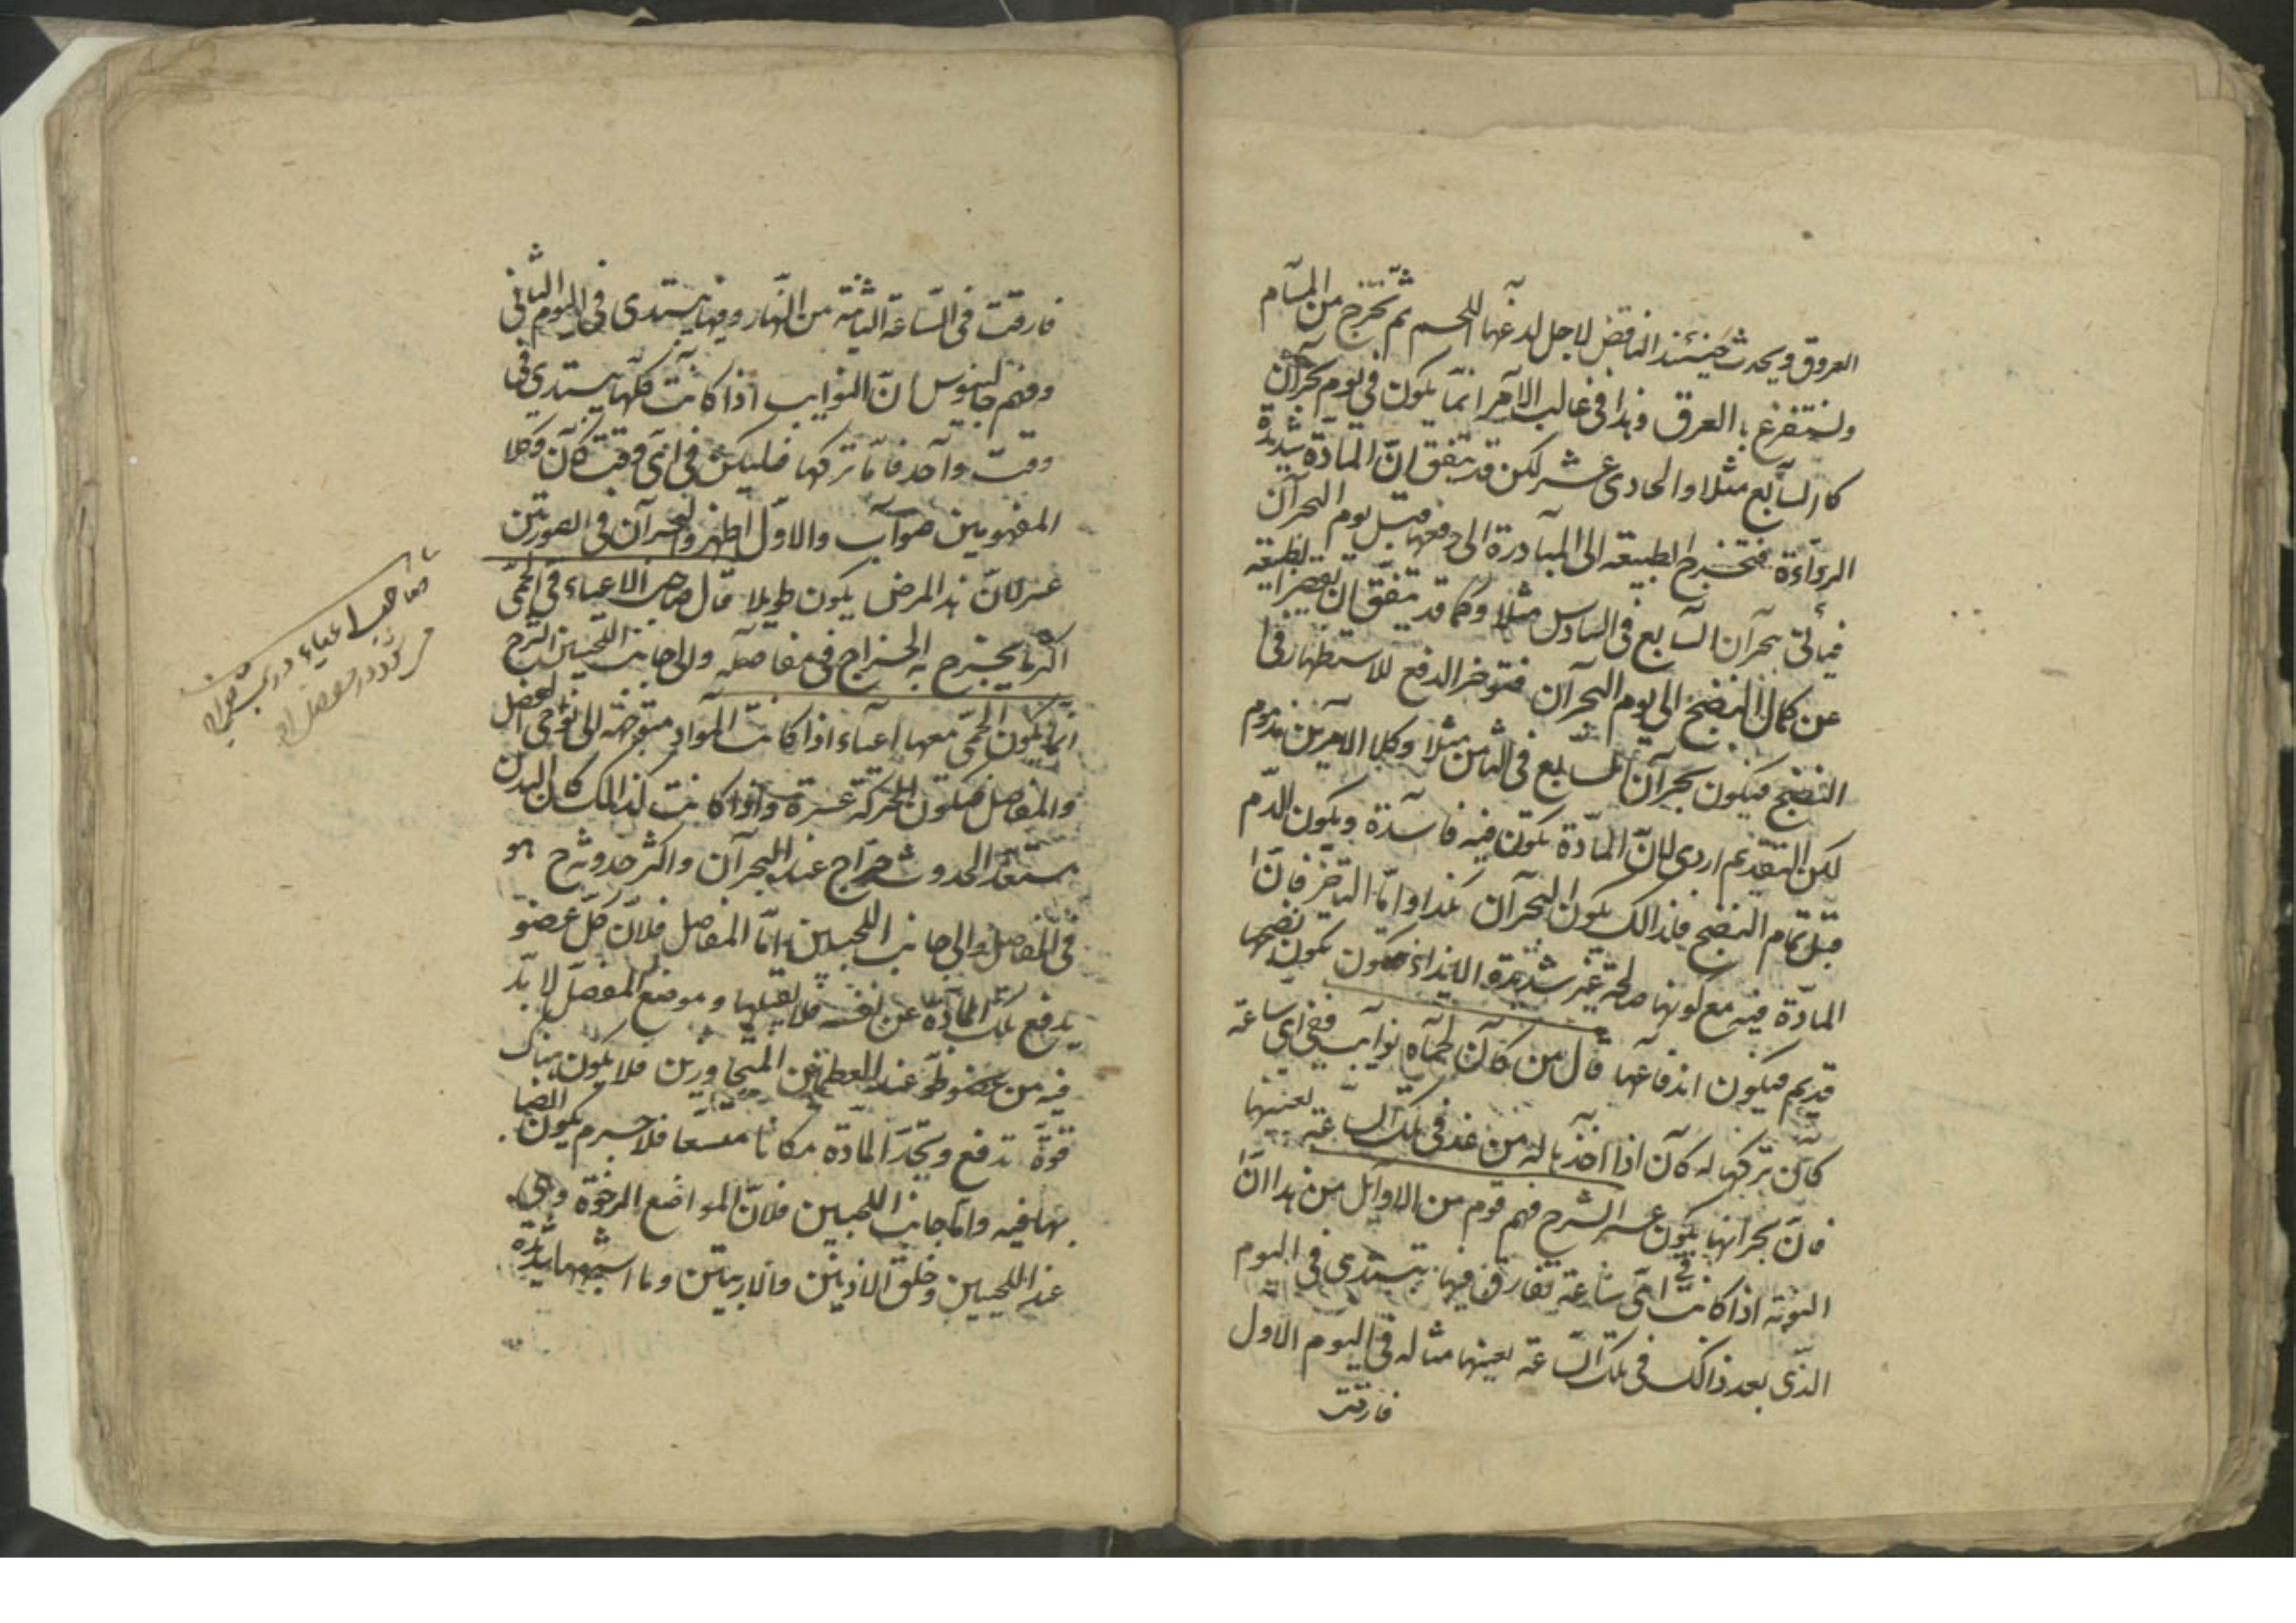 العروق ويحدث حينئذ النافض لاجل لدغها اللحم ثم تخرج من المسام
وتستفرغ بالعرق وهذا في غالب الامر انما يكون في يوم بحران
كالسابع مثلا والحادى عشر لكن قد يتفق ان المادة شديدة
الرداءة فتخرج الطبيعة الى المبادرة الى دفعها قبل يوم البحران
فيأتى بحران السابع في السادس مثلا وكما قد يتفق ان تقصر الطبيعة
عن كمال النضج الى يوم البحران فتوخر الدفع للاستظهار في
النضج فيكون بحران السابع في الثامن مثلا وكلا الامرين مذموم
لكن التقديم اردى لان المادة تكون فيه فاسدة ويكون الدم
قبل تمام النضج فلذالك يكون البحران واما التاخر فان
المادة فيه مع كونها صالحة غير شديدة الايذاء يكون نضجها
قديم فيكون اندفاعها قال من كان لحماه نوايب ففي اى ساعة
كان تركها له كان اذا اخذها له من غد في تلك الساعة بعينها
فان بحرانها يكون عسر الشرح فهم قوم من الاوائل من هذا ان
النوبة اذا كانت في اى ساعة تفارق فيها تبتدى في اليوم
الذى بعد ذالك في تلك الساعة بعينها مثاله في اليوم الاول
فارقت
فارقت في الساعة الثامنة من النهار وفيها يبتدى في اليوم الثاني
وفهم جالينوس ان النوايب اذا كانت كلها يبتدى في
وقت واحد فاما تركها فليكن في اى وقت كان وكلا
المفهومين صواب والاول اظهر والبحران في الصورتين
عسر لان هذا المرض يكون طويلا قال صاحب الاعياء في الحمى
اكثر ما يخرج به الخراج في مفاصله والى جانب اللحيين الشرح
انما يكون الحمى معها اعياء اذا كانت المواد متوجهة الى نواحى العضل
والمفاصل فيكون الحركة عسرة واذا كانت كذالك كان البدن
مستعدا لحدوث خراج عند البحران واكثر حدوثه هو
في المفاصل والى جانب اللحيين اما المفاصل فلان كل عضو
يدفع تلك المادة عن نفسه فلا يقبلها وموضع المفصل لا بد
فيه من عند العظمين المتجاورين فلا يكون هناك
قوة تدفع وتجد المادة مكانا متسعا فلا جرم يكون انصبا
بها فيه واما جانب اللحيين فلان المواضع الرخوة وهى
عند اللحيين وخلف الاذنين والاربيتين وما اشبهها شديدة
صاحب اعياء در تب